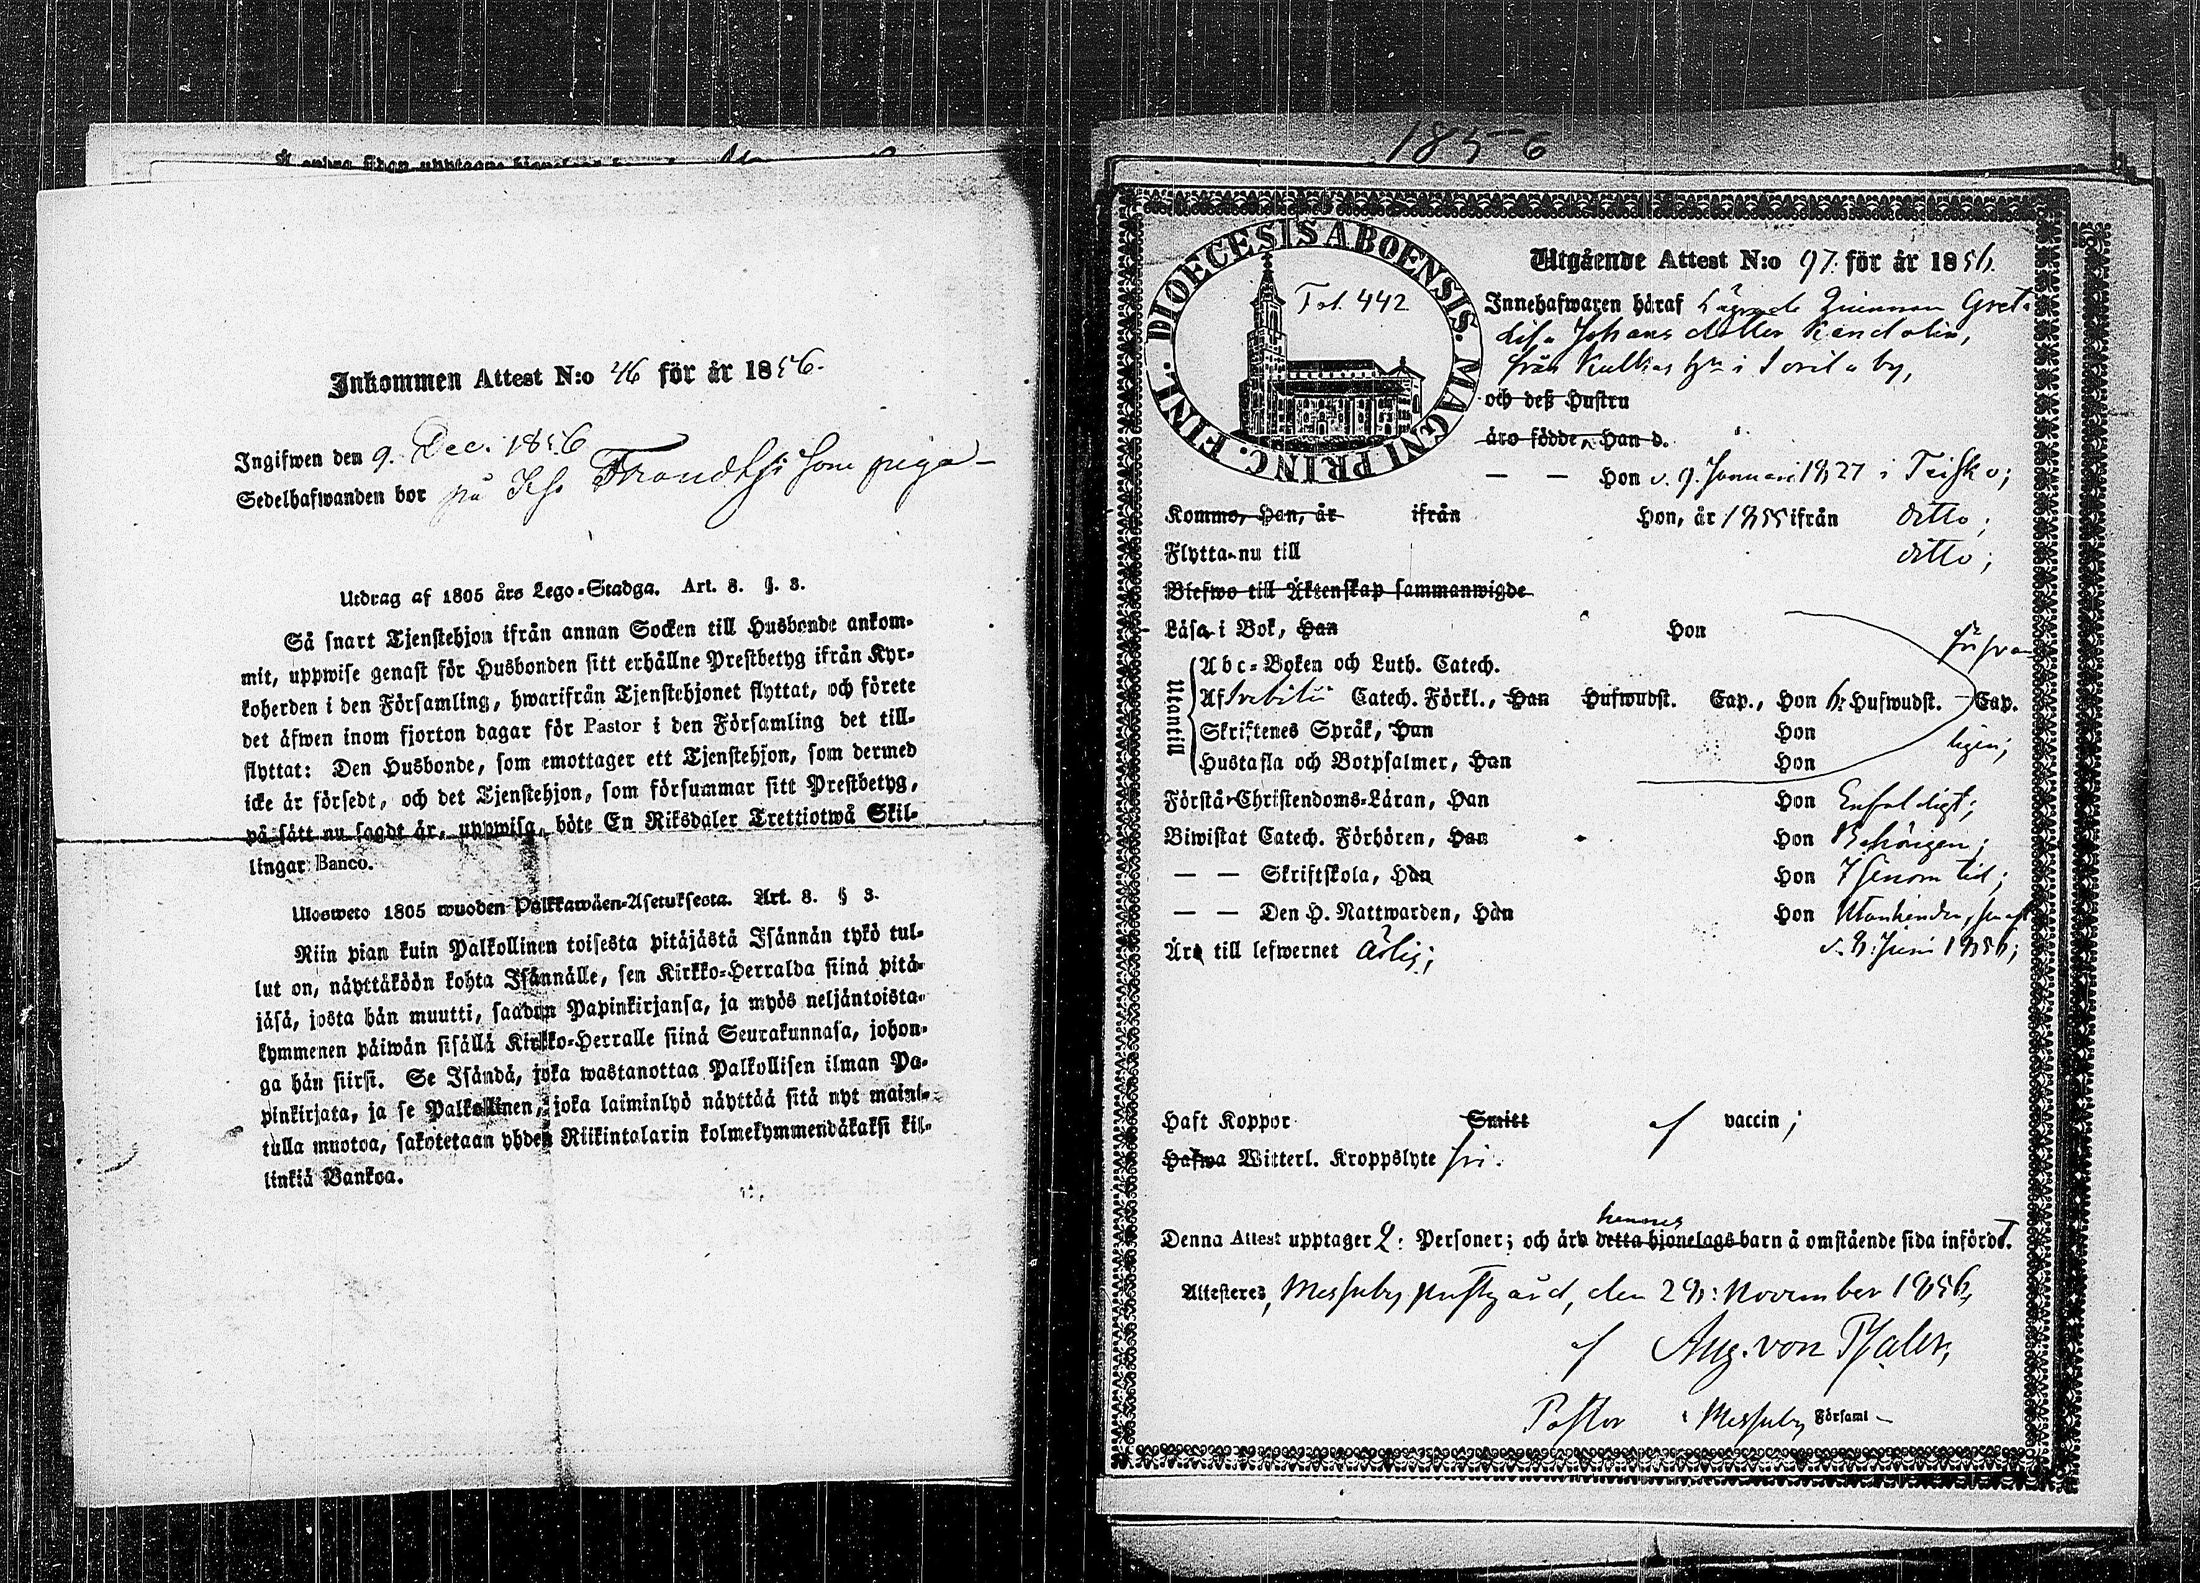 Inkommen Attest N:o 46 för år 1856.
Ingifwen den 9. Dec. 1856
Sedelhafwanden bor på som piga
Utdrag af 1805 års Lego-Stadga. Art. 8. §. 3.
Så snart Tjenstehjon ifrån annan Socken till Husbonde ankom-
mit, uppwise genast för Husbonden sitt erhållne Prestbetyg ifrån Kyr-
koherden i den Församling, hwarifrån Tjenstehjonet flyttat, och förete
det äfwen inom fjorton dagar för Pastor i den Församling det till-
flyttat: Den Husbonde, som emottager ett Tjenstehjon, som dermed
icke är försedt, och det Tjenstehjon, som försummar sitt Prestbetyg,
på sätt nu sagdt är, uppwisa, böte En Riksdaler Trettiotwå Skil-
lingar Banco.
Ulosweto 1805 wuoden Palkkawäen-Asetuksesta. Art. 8. § 3.
Niin pian kuin Palkollinen toisesta pitäjästä Isännän tykö tul-
lut on, näyttäköön kohta Isännälle, sen Kirkko-Herralda siinä pitä-
jäsä, josta hän muutti, saadun Papinkirjansa, ja myös neljäntoista-
kymmenen päiwän sisällä Kirkko-Herralle siinä Seurakunnasa, johon-
ga hän siirsi. Se Isändä, joka wastanottaa Palkollisen ilman Pa-
pinkirjata, ja se Palkollinen, joka laiminlyö näyttää sitä nyt maini-
tulla muotoa, sakotetaan yhden Riikintalarin kolmekymmendäkaksi kil-
linkiä Bankoa.
1856
DIOECESIS ABOENSIS. MAGNI PRINC. FINL.
Fol. 442
Utgående Attest N:o 97. för år 1856.
Innehafwaren häraf Lägrade Qvinnan Greta
Lisa Johans dotter
från i by,
och deß Hustru
äro födde, Han d.
— — Hon d. 9. Januari 1827 i Teisko;
Kommo, Han, år ifrån Hon, år 1855 ifrån ditto;
Flytta nu till ditto;
Blefwo till Äktenskap sammanwigde
Läsa i Bok, Han Hon
Utantill
Abc-Boken och Luth. Catech.
Af Svebilii Catech. Förkl., Han Hufwudst. Cap., Hon Hufwudst. Cap.
Skriftenes Språk, Han Hon
Hustafla och Botpsalmer, Han Hon
Förstå Christendoms-Läran, Han Hon Enfaldigt;
Biwistat Catech. Förhören, Han Hon Behörigen;
— — Skriftskola, Han Hon I senom tid;
— — Den H. Nattwarden, Han Hon
d. 8. Juni 1856;
Äro till lefwernet ärlig;
Haft Koppor Smitt af vaccin;
Hafwa Witterl. Kroppslyte fri.
Denna Attest upptager 2. Personer; och äro detta hjonelags hennes barn å omstående sida infördt.
Attesteres, Messuby prestgård, den 28: November 1856,
af Aug. von Pfaler,
Pastor i Messuby Församl